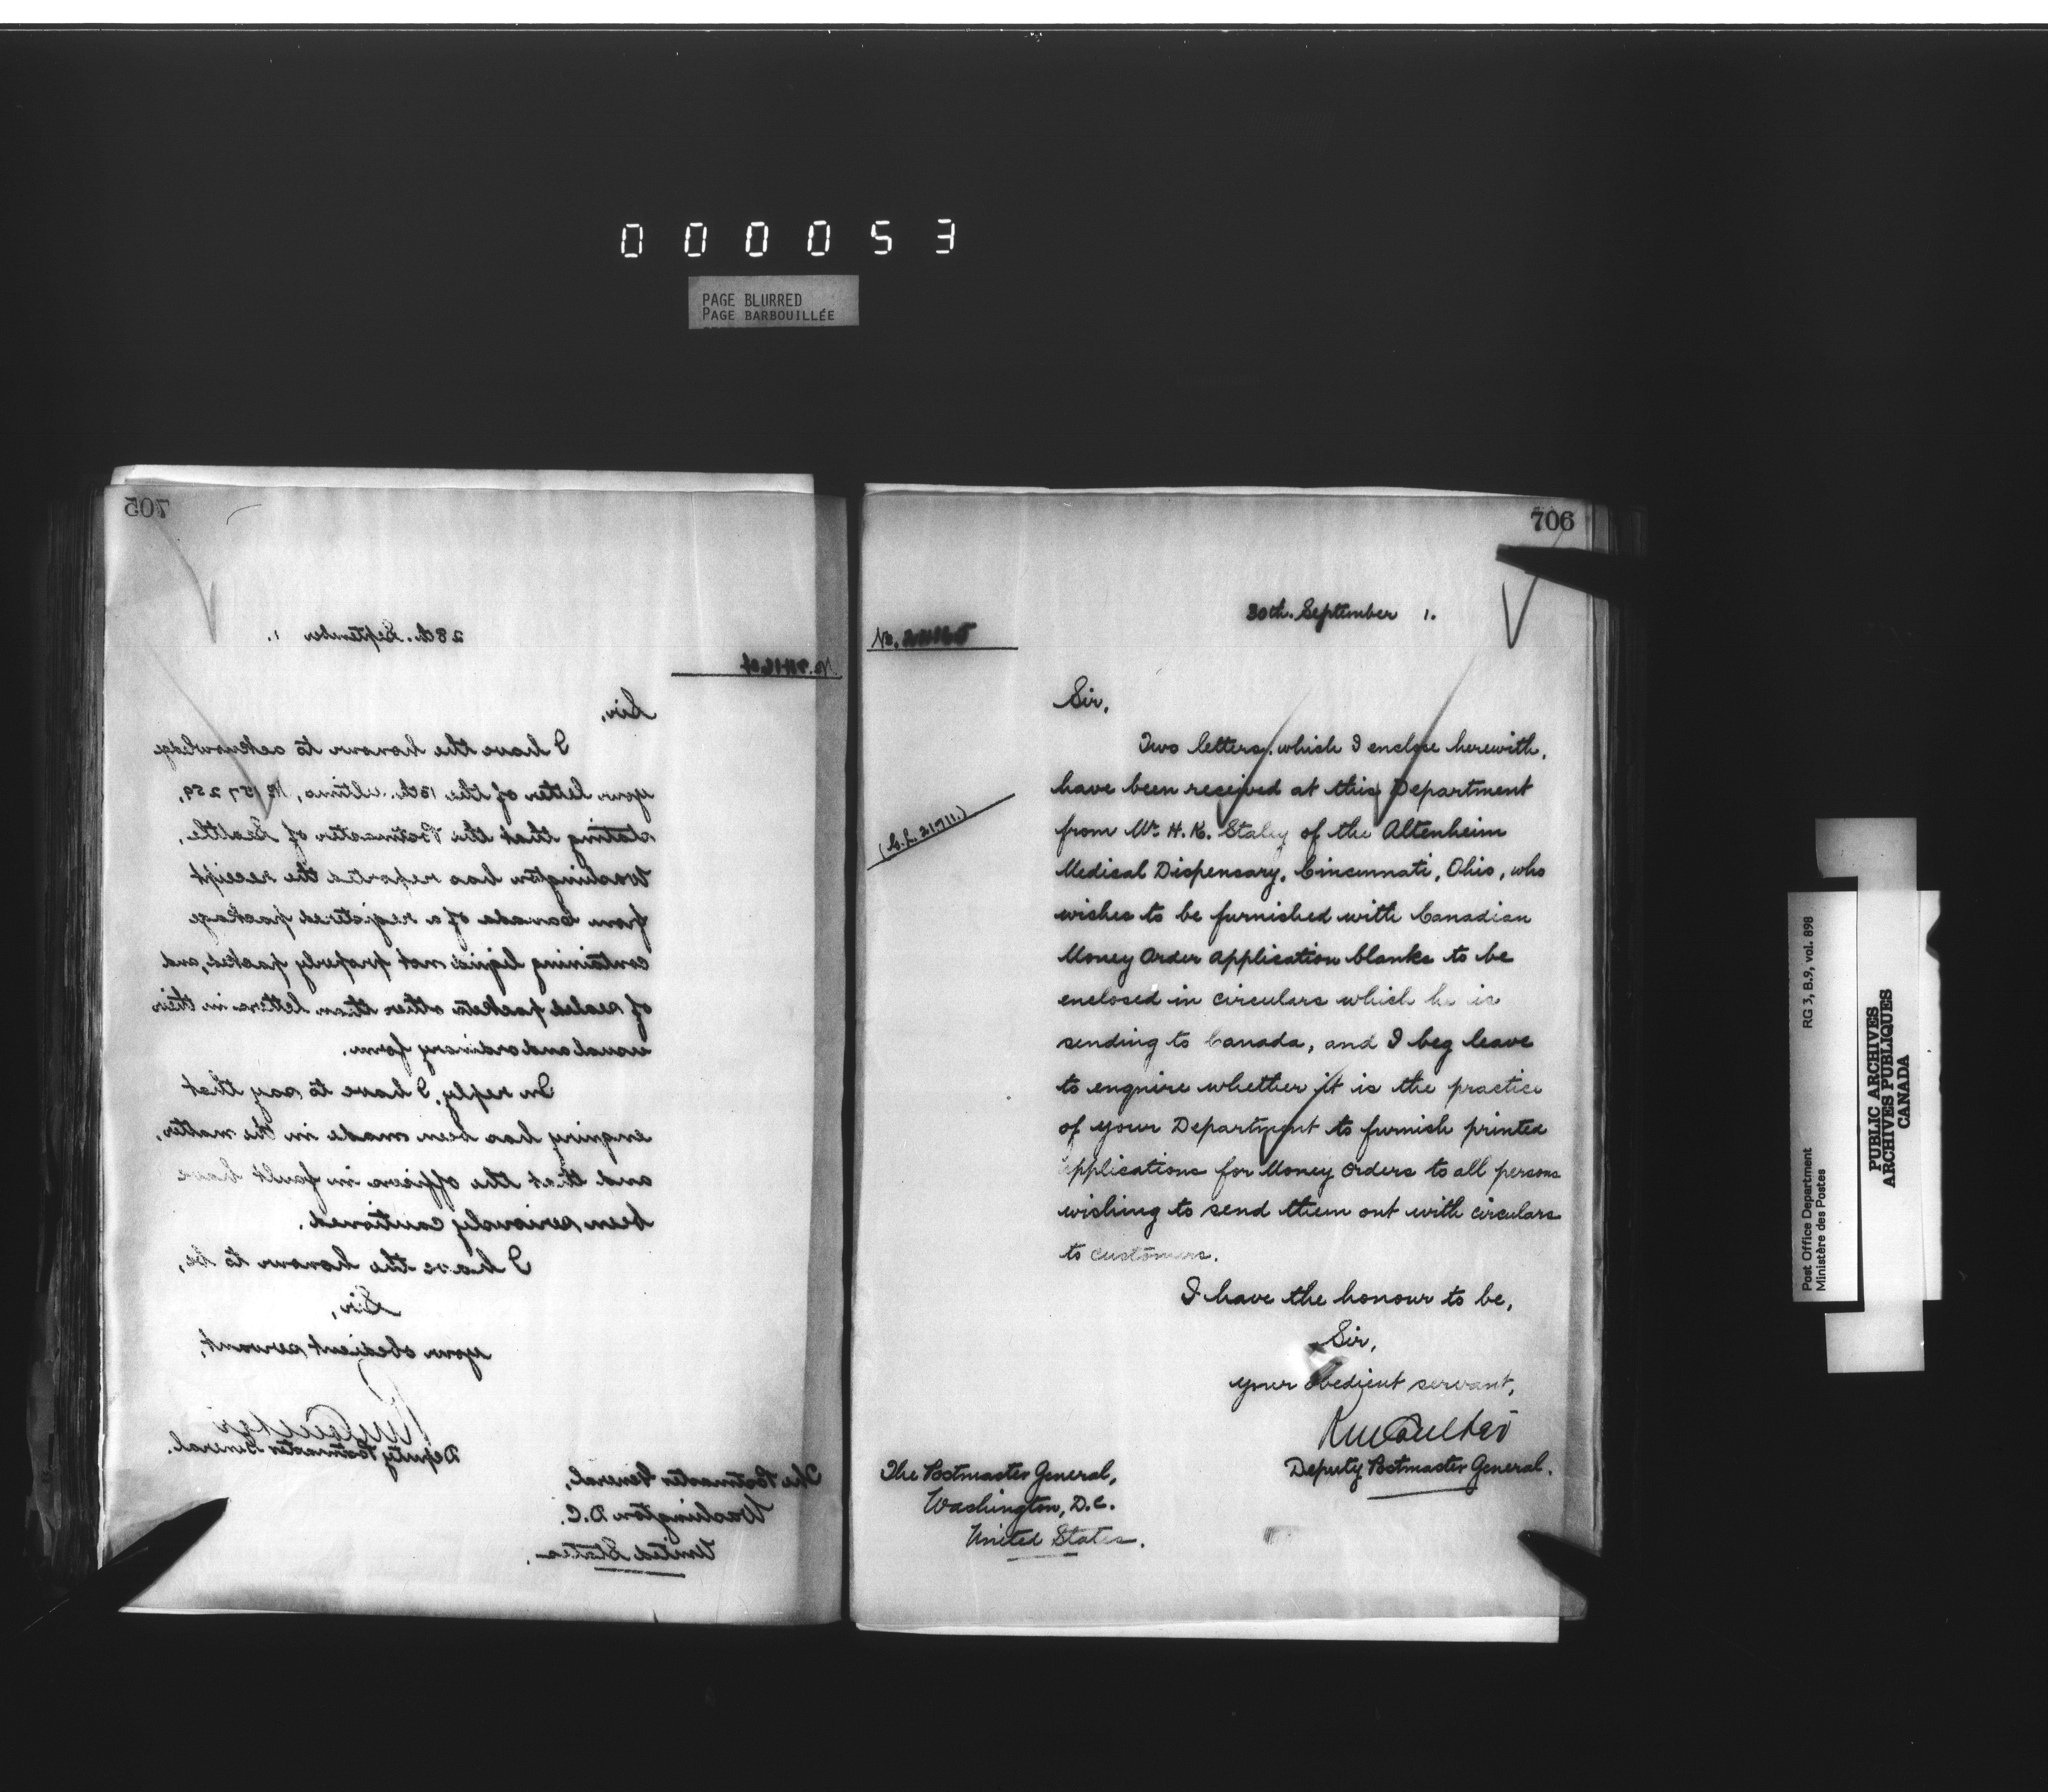 000053
PAGE BLURRED
PAGE BARBOUILLÉE
705
28th. September 1.
No.
Sir,
I have the honour to acknowledge
your letter of the 13th. ultimo, No 157259,
stating that the Postmaster of Seattle,
Washington has reported the receipt
from Canada of a registered package
containing liquid not properly packed, and
of sealed packets other than letters in their
usual and ordinary form.
In reply, I have to say that
enquiry has been made in the matter,
and that the officers in fault have
been seriously cautioned.
I have the honour to be,
Sir,
your obedient servant,
RM Coulter
Deputy Postmaster General.
The Postmaster General,
Washington D.C.
United States.
706
30th. September 1.
No.
Sir,
Two letters, which I enclose herewith,
have been received at this Department
(C.L. 21711.)
from Mr. H. K. Staley of the Altenheim
Medical Dispensary, Cincinnati, Ohio, who
wishes to be furnished with Canadian
Money Order Application blanks to be
enclosed in circulars which he is
sending to Canada, and I beg leave
to enquire whether it is the practice
of your Department to furnish printed
applications for Money Orders to all persons
wishing to send them out with circulars
to customers.
I have the honour to be,
Sir,
your obedient servant,
RM Coulter
Deputy Postmaster General.
The Postmaster General,
Washington, D.C.
United States.
RG 3, B.9, vol. 898
Post Office Department
Ministère des Postes
PUBLIC ARCHIVES
ARCHIVES PUBLIQUES
CANADA